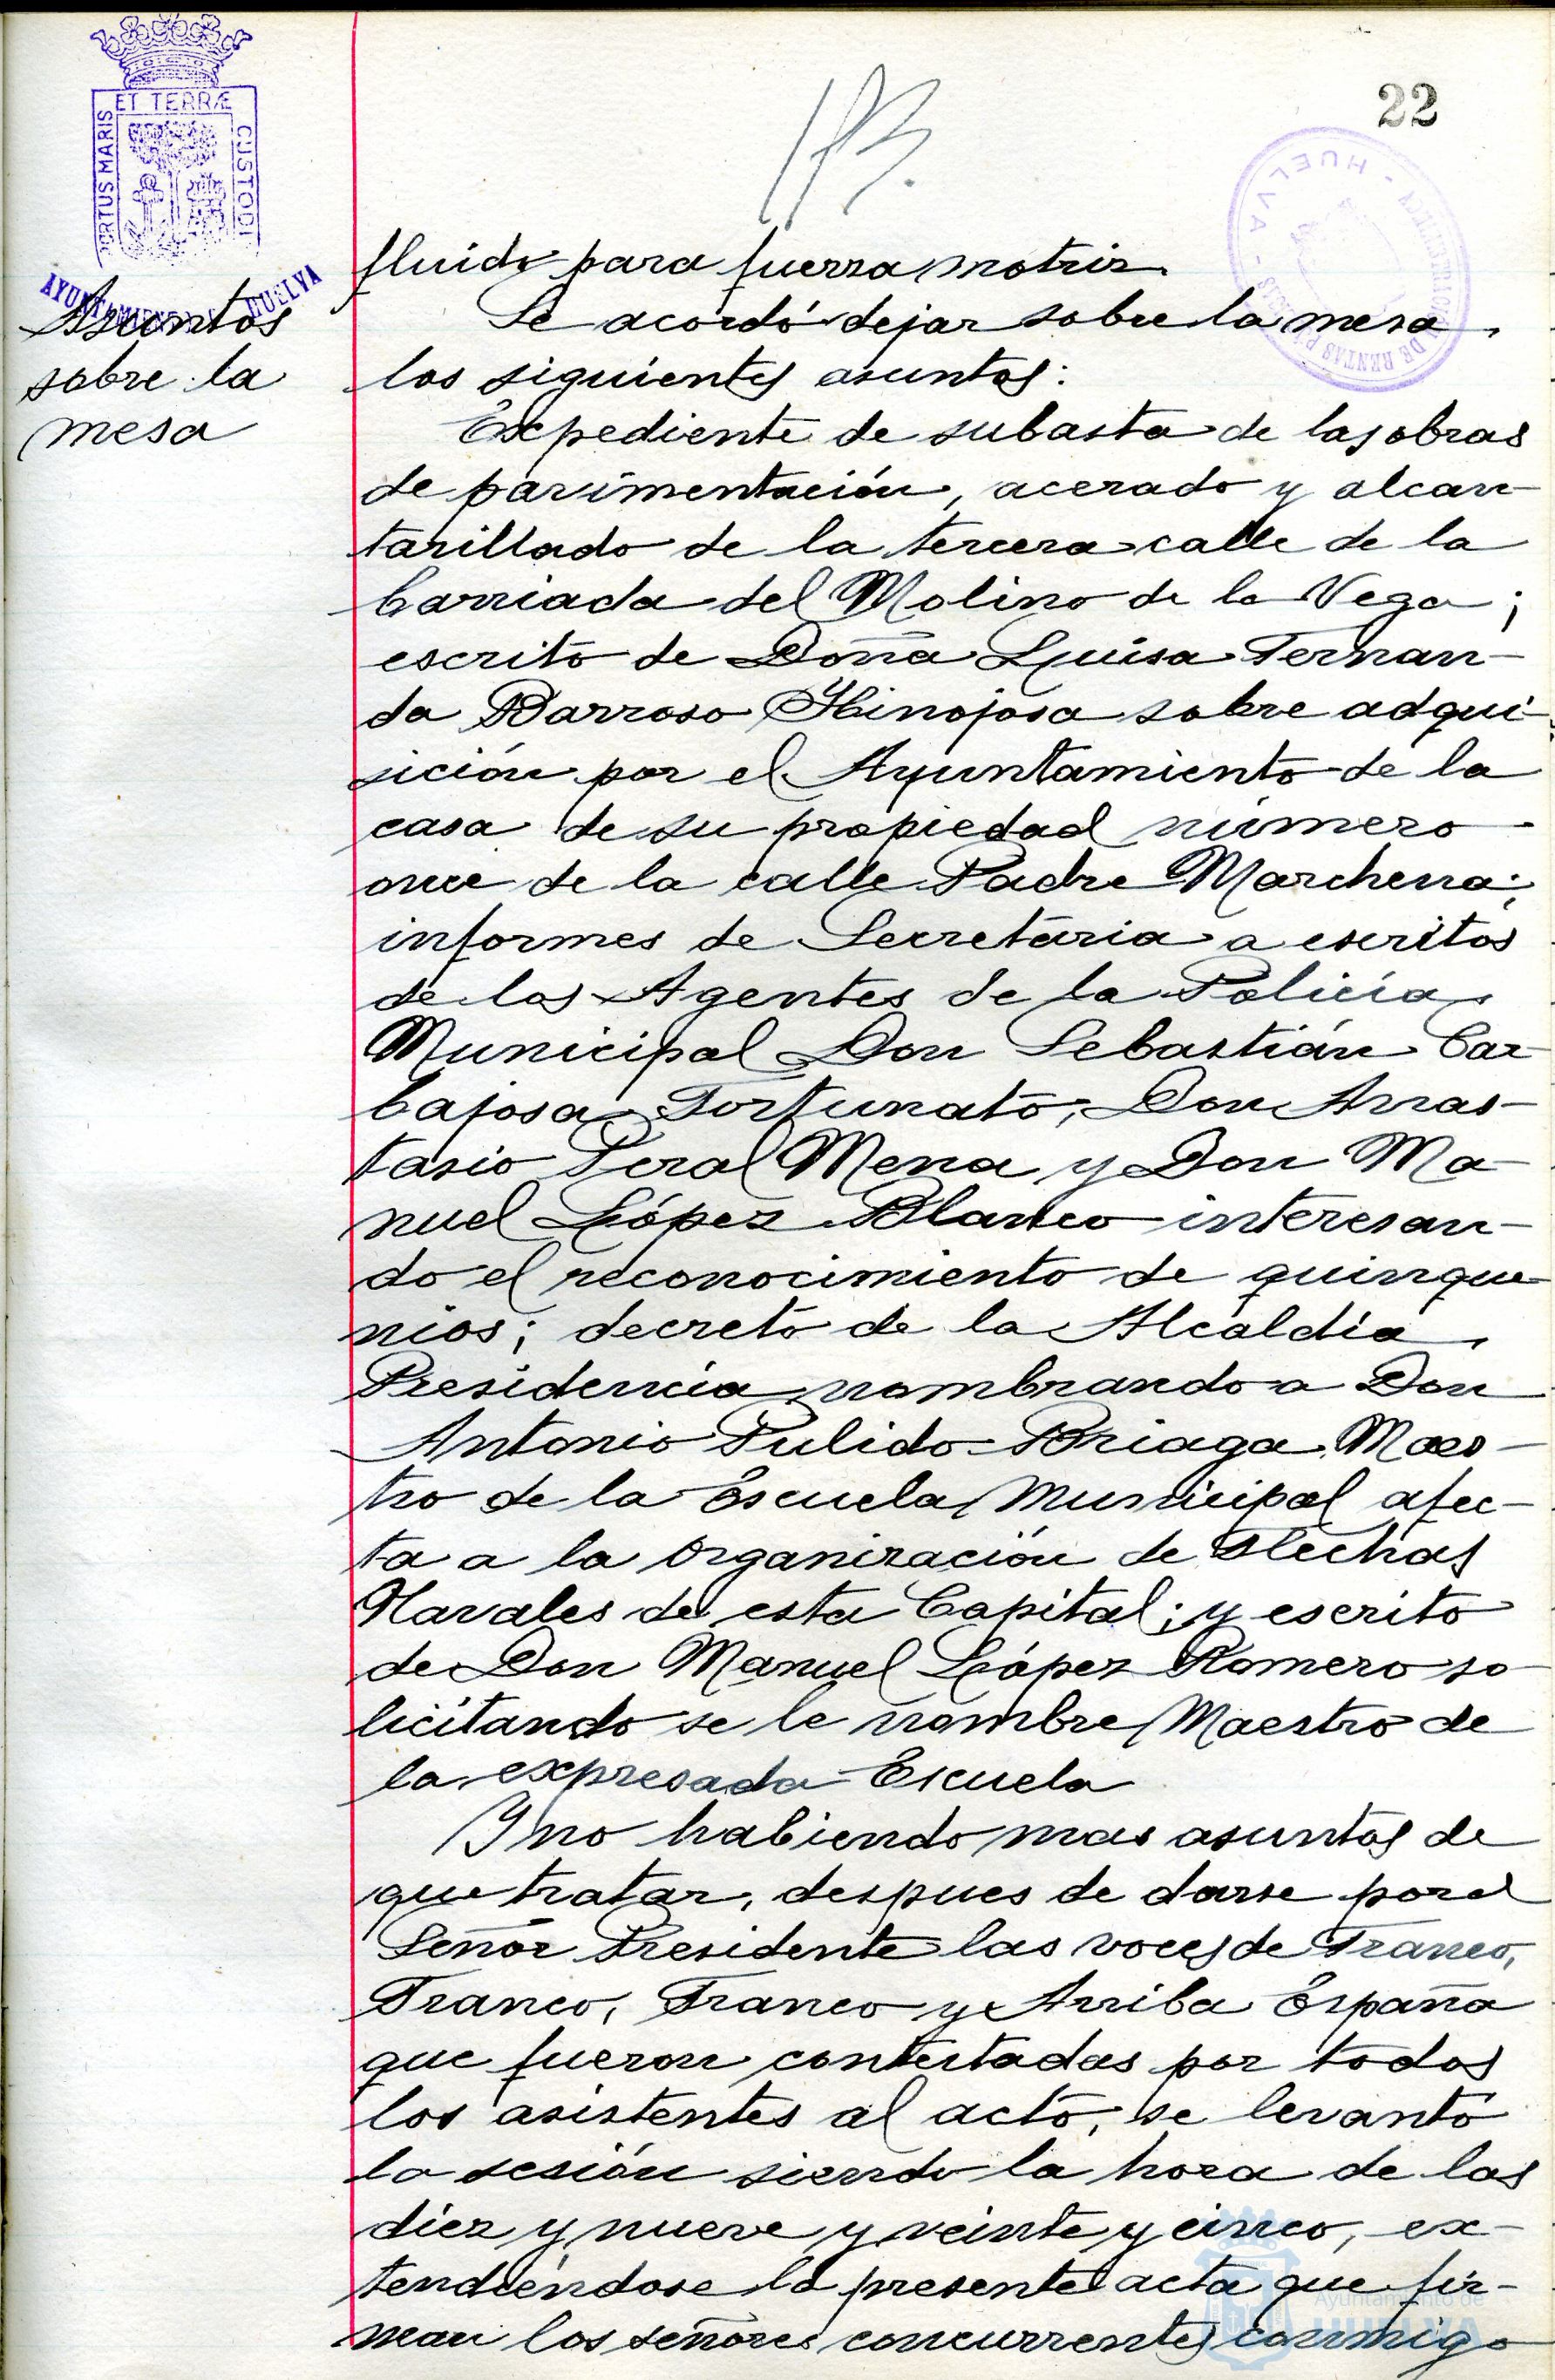 22
PORTUS MARIS
ET TERRÆ
CUSTODI
AYUNTAMIENTO HUELVA
HUELVA
DE RENTAS
Asuntos
sobre la
mesa
fluido para fuerza motriz.
Se acordó dejar sobre la mesa
los siguientes asuntos:
Expediente de subasta de las obras
de pavimentación, acerado y alcan-
tarillado de la tercera calle de la
barriada del Molino de la Vega;
escrito de Doña Luisa Fernan-
da Barroso Hinojosa sobre adqui-
sición por el Ayuntamiento de la
casa de su propiedad número
once de la calle Padre Marchena;
informes de Secretaria a escritos
de los Agentes de la Policía
Municipal Don Sebastián Car-
bajosa Fortunato, Don Anas-
tasio Peral Mena y Don Ma-
nuel López Blanco interesan-
do el reconocimiento de quinque-
nios; decreto de la Alcaldía
Presidencia nombrando a Don
Antonio Pulido Briaga Maes-
tro de la Escuela Municipal afec-
ta a la Organización de Flechas
Navales de esta Capital; y escrito
de Don Manuel López Romero so-
licitando se le nombre Maestro de
la expresada Escuela
Y no habiendo mas asuntos de
que tratar, despues de darse por el
Señor Presidente las voces de Franco,
Franco, Franco y Arriba España
que fueron contestadas por todos
los asistentes al acto, se levantó
la sesión siendo la hora de las
diez y nueve y veinte y cinco, ex-
tendiéndose la presente acta que fir-
man los señores concurrentes conmigo
Ayuntamiento de
HUELVA